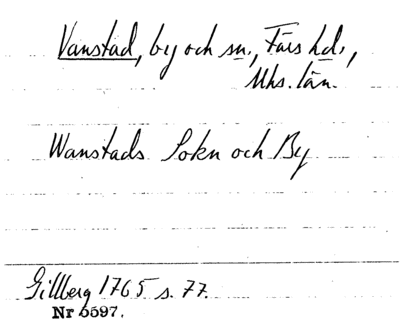 Vanstad, by och sn., Färs hd.,
Mhs. län.
Wanstads Sokn och By
Gillberg 1765 s. 77.
Nr 5597.